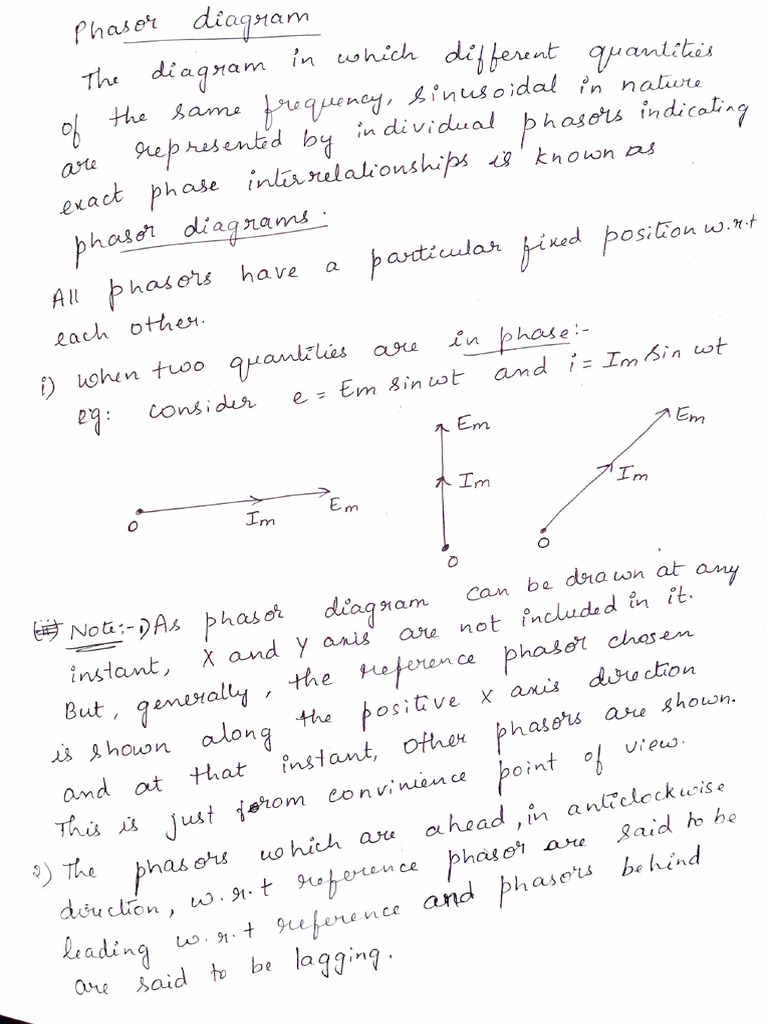 Phasor diagram
The diagram in which different quantities
of the same frequency, sinusoidal in nature
are represented by individual phasors indicating
exact phase interrelationships is known as
phasor diagrams.
All phasors have a particular fixed position w.r.t
each other.
i) When two quantities are in phase:-
eg: consider e = Em sin wt and i = Im sin wt
O Im Em
Em
Im
O
Em
Im
O
Note:- 1) As phasor diagram can be drawn at any
instant, X and Y axis are not included in it.
But, generally, the reference phasor chosen
is shown along the positive x axis direction
and at that instant, other phasors are shown.
This is just from convinience point of view.
2) The phasors which are ahead, in anticlockwise
direction, w.r.t reference phasor are said to be
leading w.r.t reference and phasors behind
are said to be lagging.